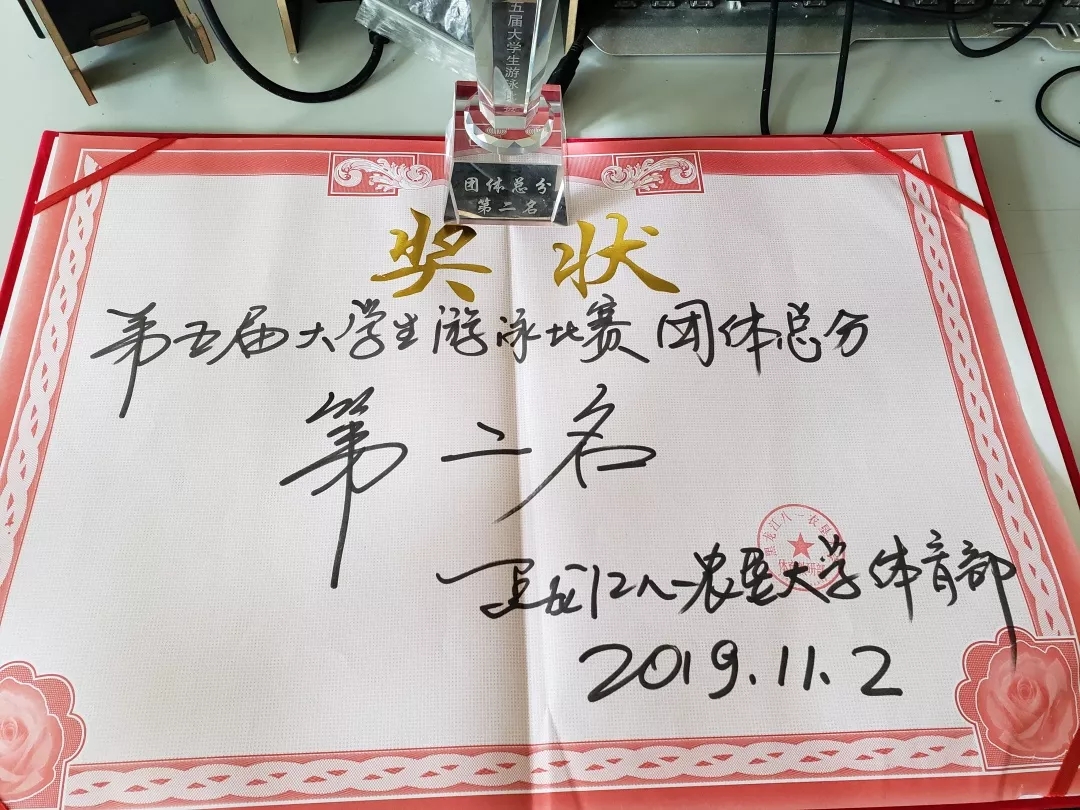 五届大学生游泳比赛
团体总分
第二名
奖状
第五届大学生游泳比赛团体总分
第二名
黑龙江八一农垦大学体育部
2019.11.2